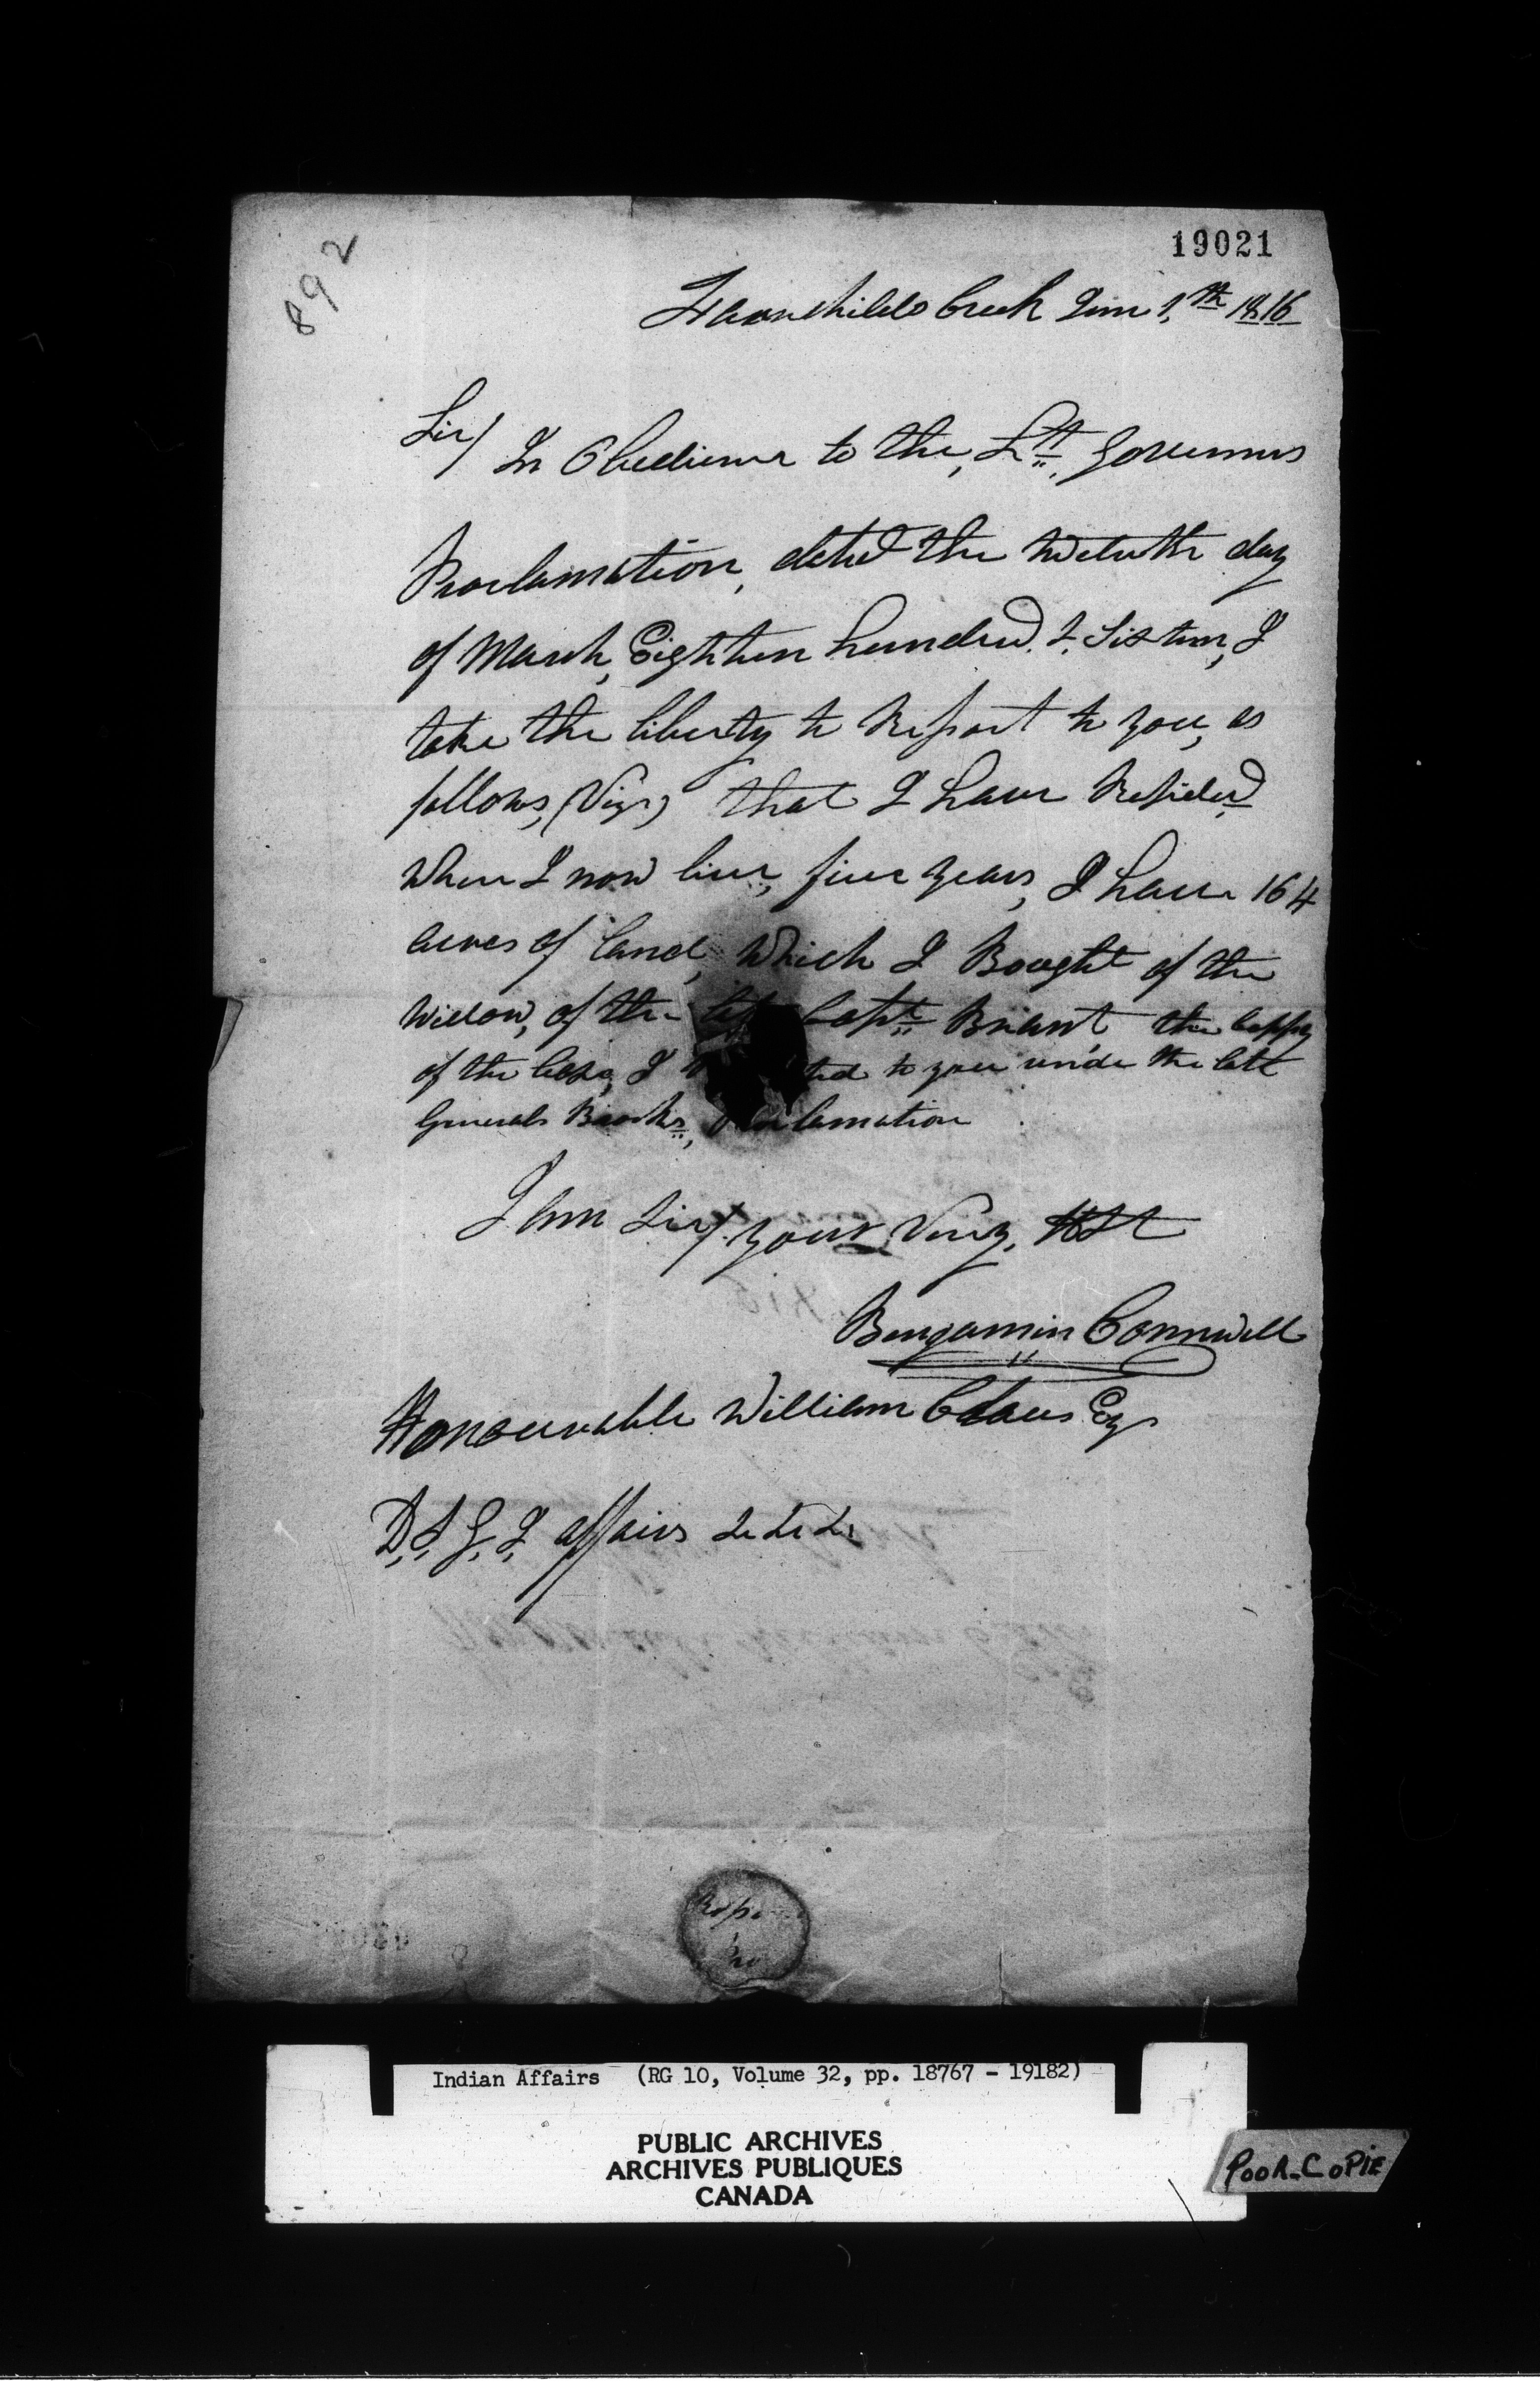 892
19021
Fairchilds Creek June 1th 1816
Sir/ In Obedience to the, Lt Governors
Proclamation, dated the twelvth day
of March, Eighteen hundred & Sixteen, I
take the liberty to Report to you, as
follows, (Viz) that I have Resided
where I now live, five years, I have 164
acres of land, which I Bought of the
widow, of the Capt Briant, the coppy
of the Case, I to you under the late
Generals Brocks, Proclamation
I am Sir/ your Very, Hst
Benjamin Cornwell
Honourable William Claus Esqr
D, S, G, I, affairs &c &c &c
Indian Affairs (RG 10, Volume 32, pp. 18767 - 19182)
PUBLIC ARCHIVES
ARCHIVES PUBLIQUES
CANADA
POOR-COPIE